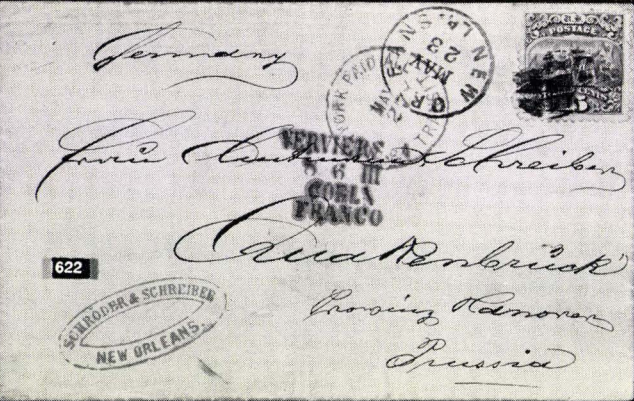 Germany
NEW ORLEANS LA.
MAY
23
NEW YORK PAID ALL
MAY
BR. TRANSIT
POSTAGE
15
VERVIERS
8 6 III
COELN
FRANCO
Frau Amtmann Schreiber
Quakenbrück
Provinz Hanover
Prussia
622
SCHRODER & SCHREIBER
NEW ORLEANS.